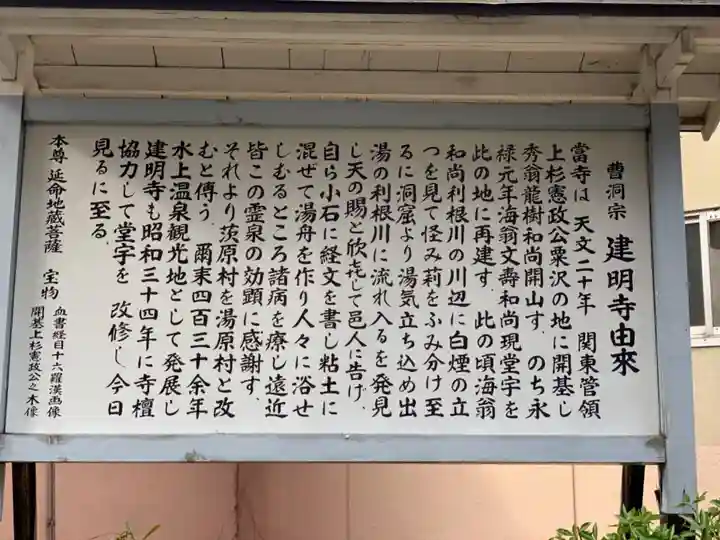 曹洞宗 建明寺由來
當寺は 天文二十年 関東管領
上杉憲政公粟沢の地に開基し
秀翁龍樹和尚開山す、のち永
禄元年海翁文壽和尚現堂宇を
此の地に再建す、此の頃海翁
和尚利根川の川辺に白煙の立
つを見て怪み莿をふみ分け至
るに洞窟より湯気立ち込め出
湯の利根川に流れ入るを発見
し天の賜と欣㐂して邑人に告げ、
自ら小石に経文を書し粘土に
混ぜて湯舟を作り人々に浴せ
しむるところ諸病を療し遠近
皆この霊泉の効顕に感謝す、
それより茨原村を湯原村と改
むと傳う、爾来四百三十余年
水上温泉観光地として発展し
建明寺も昭和三十四年に寺檀
協力して堂宇を 改修し今日
見るに至る、
本尊 延命地蔵菩薩 宝物 血書経目十六羅漢画像
開基上杉憲政公之木像